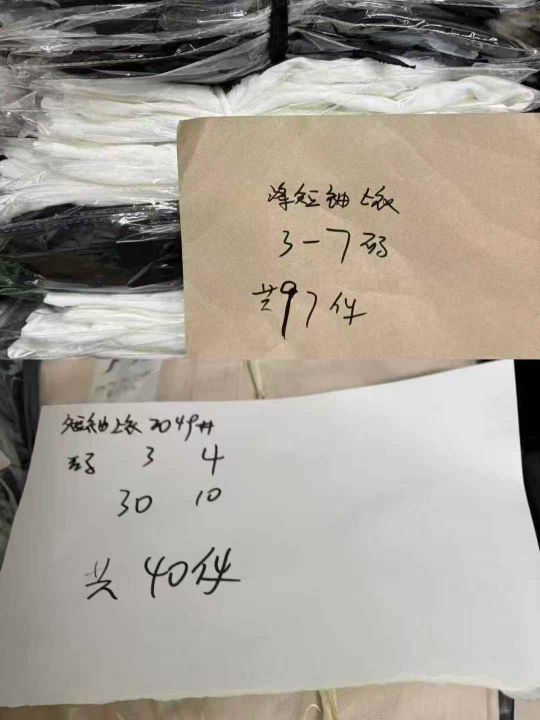 短袖上衣
3-7码
共97件
短袖上衣 2049#
码 3 4
30 10
共 40件